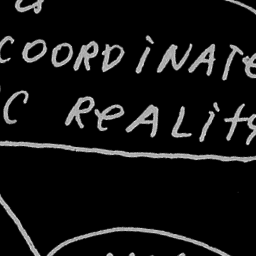 COORDINATE
C REALITY